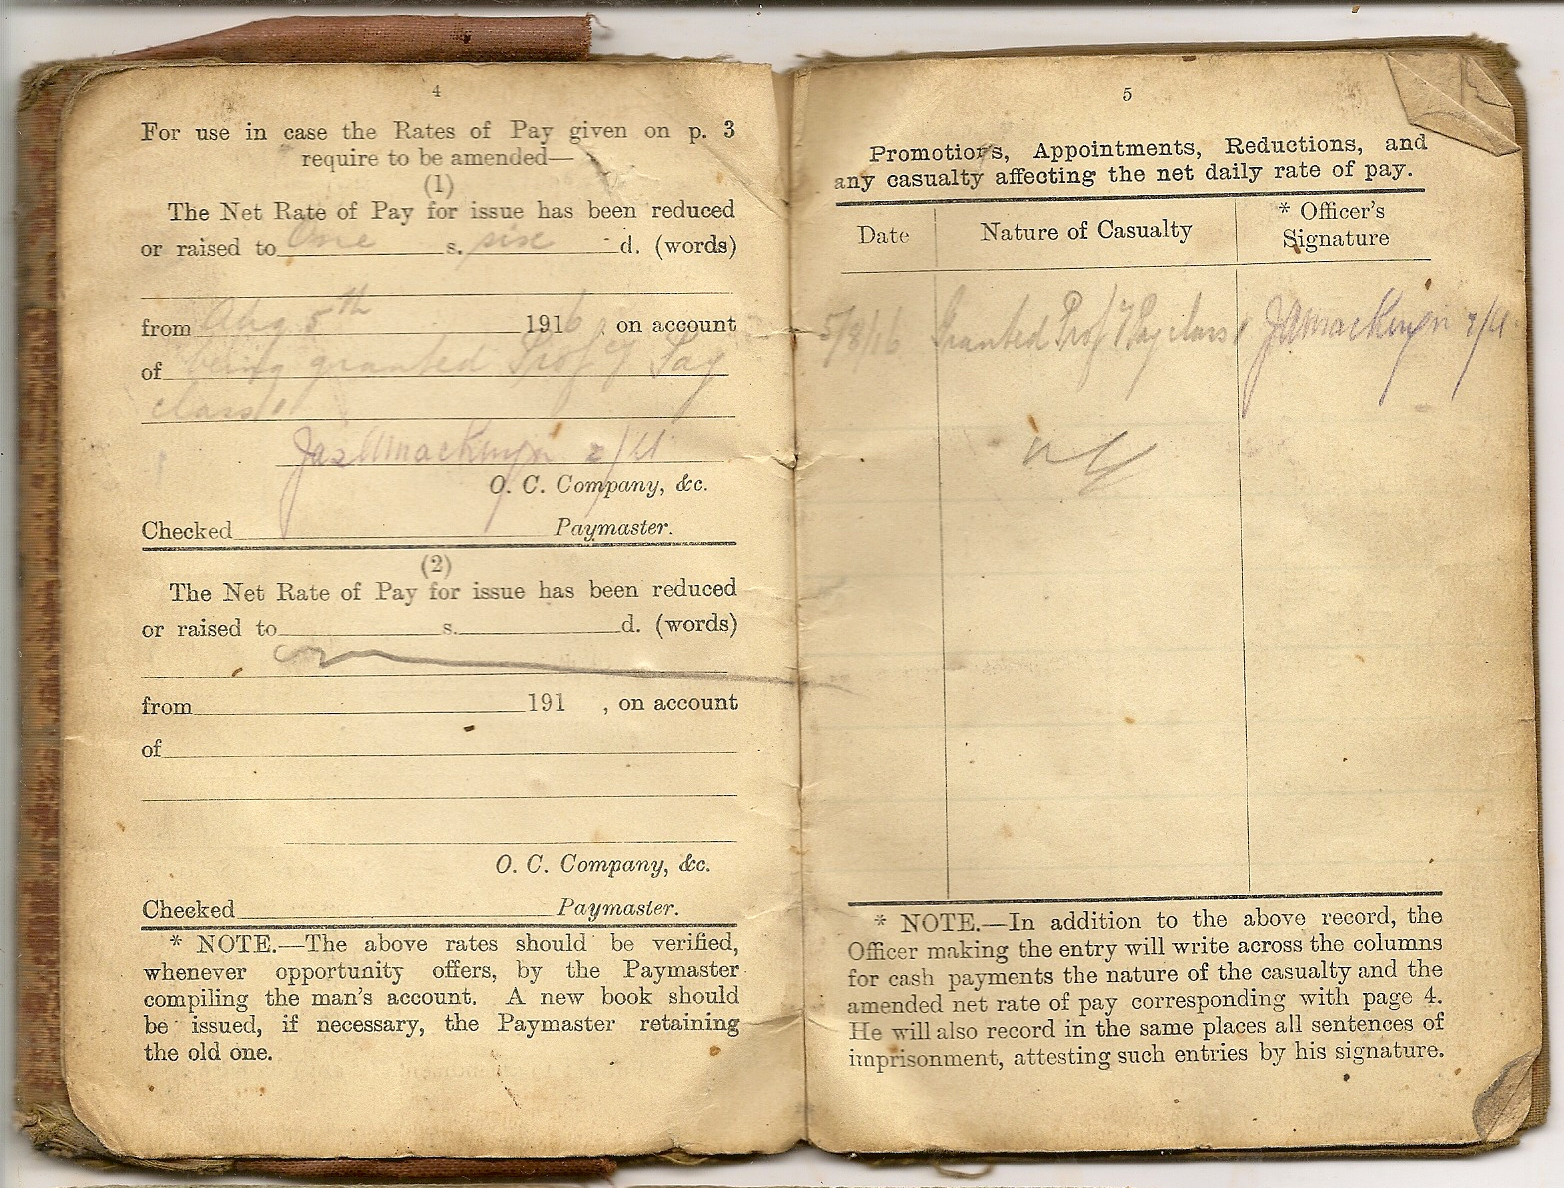 4
For use in case the Rates of Pay given on p. 3
require to be amended—
(1)
The Net Rate of Pay for issue has been reduced
or raised to One s. six d. (words)
from Aug 5th 1916, on account
of being granted Profy Pay
class 1
O. C. Company, &c.
Checked Paymaster.
(2)
The Net Rate of Pay for issue has been reduced
or raised to s. d. (words)
from 191 , on account
of
O. C. Company, &c.
Checked Paymaster.
* NOTE.—The above rates should be verified,
whenever opportunity offers, by the Paymaster
compiling the man's account. A new book should
be issued, if necessary, the Paymaster retaining
the old one.
5
Promotions, Appointments, Reductions, and
any casualty affecting the net daily rate of pay.
Date Nature of Casualty * Officer's Signature
5/8/16 Granted Prof Y Pay class 1
* NOTE.—In addition to the above record, the
Officer making the entry will write across the columns
for cash payments the nature of the casualty and the
amended net rate of pay corresponding with page 4.
He will also record in the same places all sentences of
imprisonment, attesting such entries by his signature.